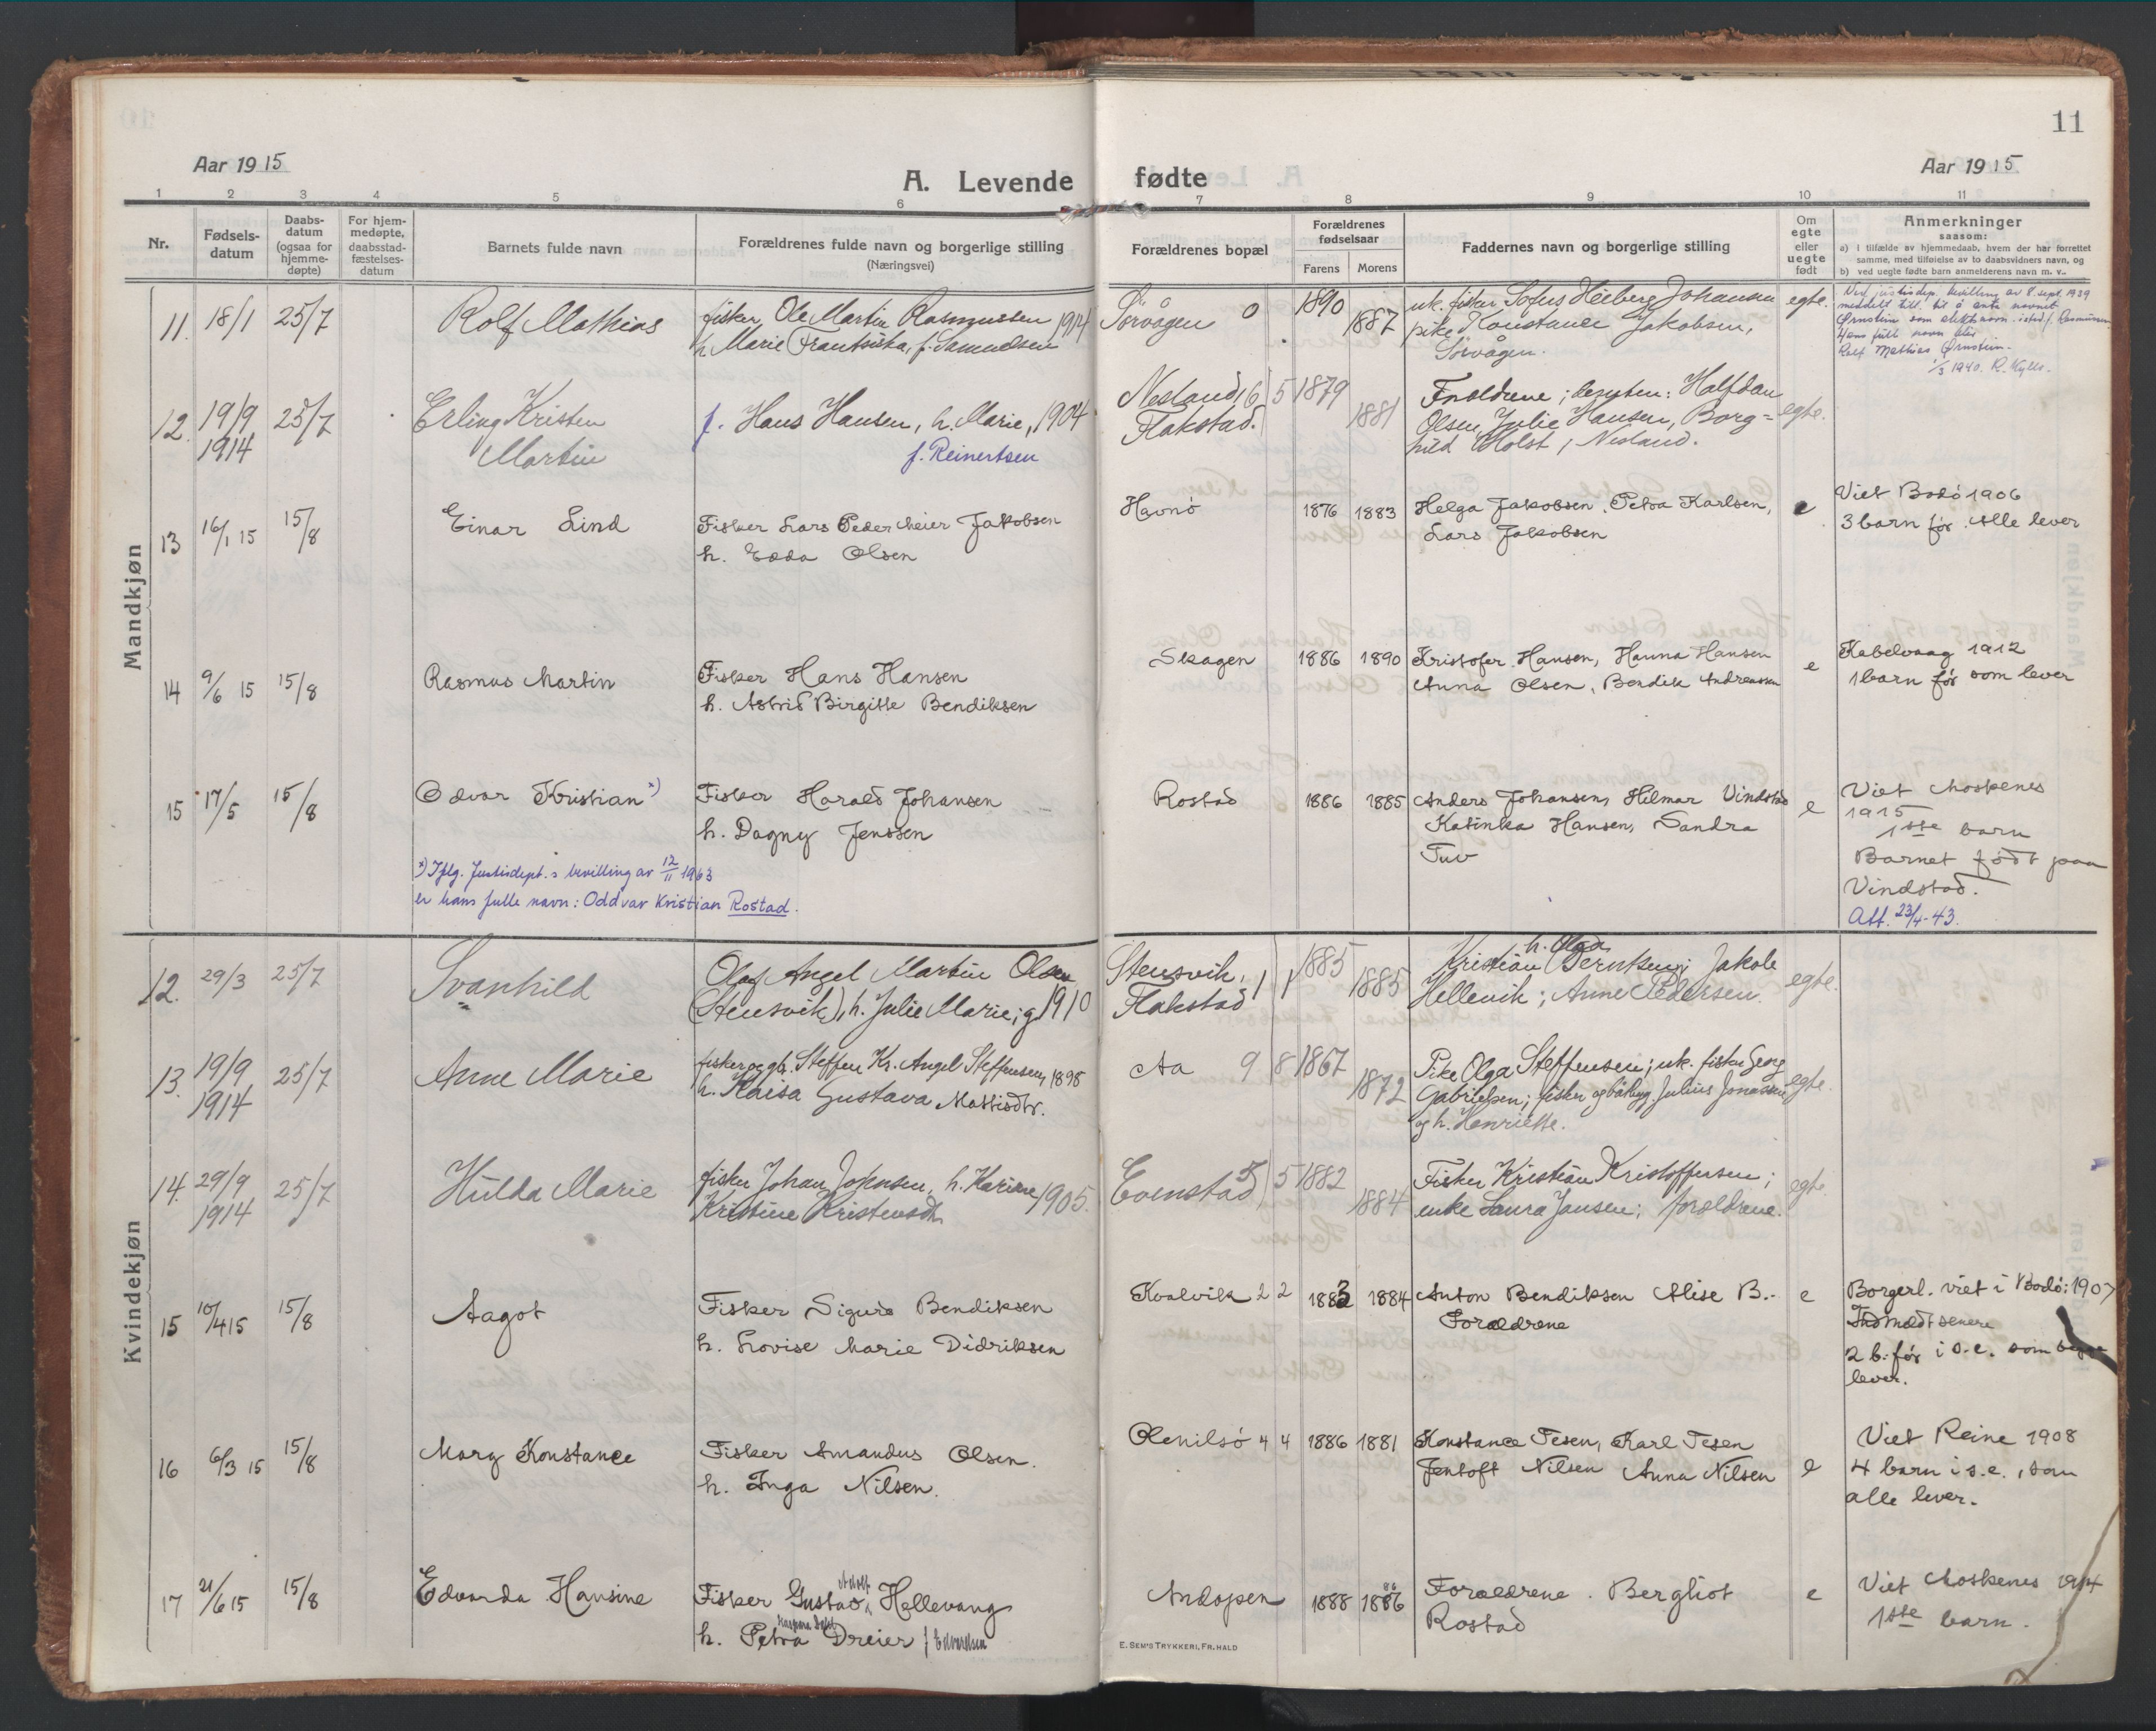 11
Aar 1915
A. Levende
fødte
Aar 1915
1 2 3 4 5 6 7 8 9 10 11
Nr.
Fødsels-
datum
Daabs-
datum
(ogsaa for
hjemme-
døpte)
For hjem-
medøpte,
daabsstad-
fæstelses-
datum
Barnets fulde navn
Forældrenes fulde navn og borgerlige stilling
(Næringsvei)
Forældrenes bopæl
Forældrenes
fødselsaar
Farens Morens
Faddernes navn og borgerlige stilling
Om
egte
eller
uegte
født
Anmerkninger
saasom:
a) i tilfælde av hjemmedaab, hvem der har forrettet
samme, med tilføielse av to daabsvidners navn, og
b) ved uegte fødte barn anmelderens navn m. v..
Mandkjøn
11. 18/1 25/7
Rolf Mathias
fisker Ole Martin Rasmussen 1914
h. Marie Frantsiska, f. Samuelsen
Sørvågen 0
1890
1887
uk. fisker Sofus Heiberg Johansen
pike Konstance Jakobsen,
Sørvågen.
egte.
Ved justisdep. bevilling av 8. sept. 1939
meddelt till. til å anta navnet
Ørnstein som slektsnavn istedf. Rasmussen.
Hans fulle navn blir
Rolf Mathias Ørnstein.
1/3 1940. R. Kylls.
12. 19/9 25/7
1914
Erling Kristen
Martin
f. Hans Hansen, h. Marie, 1904
f. Reinertsen
Nesland, 6 5
Flakstad.
1879
1881
Forældrene; desuten: Halfdan
Olsen, Julie Hansen, Borg=
hild Holst, Nesland.
egte.
13 16/1 15 15/8
Einar Lind
Fisker Lars Peder Meier Jakobsen
h. Edda Olsen
Havnö
1876 1883
Helga Jakobsen, Petra Karlsen,
Lars Jakobsen
e
Viet Bodö 1906
3 barn før. Alle lever
14 9/6 15 15/8
Rasmus Martin
Fisker Hans Hansen
h. Astrid Birgitte Bendiksen
Skagen
1886 1890
Kristofer Hansen, Hanna Hansen
Anna Olsen, Bendik Andreassen
e
Kabelvaag 1912
1 barn før som lever
15 17/5 15/8
Odvar Kristian x)
Fisker Harald Johansen
h. Dagny Jenssen
x) Iflg. Justisdept.s bevilling av 12/11 1963
er hans fulle navn: Oddvar Kristian Rostad.
Rostad
1886 1885
Anders Johansen, Hilmar Vindstad
Katinka Hansen, Sandra
Tuv
e
Viet Moskenes
1915
1ste barn
Barnet født paa
Vindstad.
Att. 23/4-43.
Kvindekjøn
12. 29/3 25/7
Svanhild
Olaf Angel Martin Olsen
(Stensvik), h. Julie Marie; g. 1910
Stensvik, 1 1
Flakstad
1885
1885
h. Olga
Kristian Berntsen; Jakob
Hellevik; Anne Pedersen.
egte.
13. 19/9 25/7
1914
Anne Marie
fisker og gb. Steffen Kr. Angel Steffensen, 1898
h. Kaisa Gustava Mattisdtr.
Aa 9 8
1867
1872
Pike Olga Steffensen; uk. fisker Georg
Gabrielsen; fisker og båtbyg. Julius Jonassen
og h. Henriette.
egte.
14. 29/9 25/7
1914
Hulda Marie
fisker Johan Johnsen, h. Karine 1905.
Kristine Kristensdtr.
Evenstad 5 5
1882
1884
Fisker Kristian Kristoffersen;
enke Laura Jansen; forældrene.
egte.
15 10/4 15 15/8
Aagot
Fisker Sigurd Bendiksen
h. Lovise Marie Didriksen
Kvalvik 2 2
1883 1884
Anton Bendiksen Alise B..
Forældrene
e
Borgerl. viet i Bodö: 1907
Indmeldt senere
2 b. før i s.e. som begge
lever.
16 6/3 15 15/8
Mary Konstance
Fisker Amandus Olsen.
h. Inga Nilsen.
Olenilsö 4 4
1886 1881
Konstance Tesen, Karl Tesen
Jentoft Nilsen Anna Nilsen
e
Viet Reine 1908
4 barn i s.e., som
alle lever.
17 21/6 15 15/8
Edvarda Hansine
Fisker Gustav Adolf Hellevang
h. Petra Dreier f. Edvardsen
Andopen
1888 1886
Forældrene. Bergliot
Rostad
e
Viet Moskenes 1914
1ste barn.
E. SEM'S TRYKKERI, FR.HALD